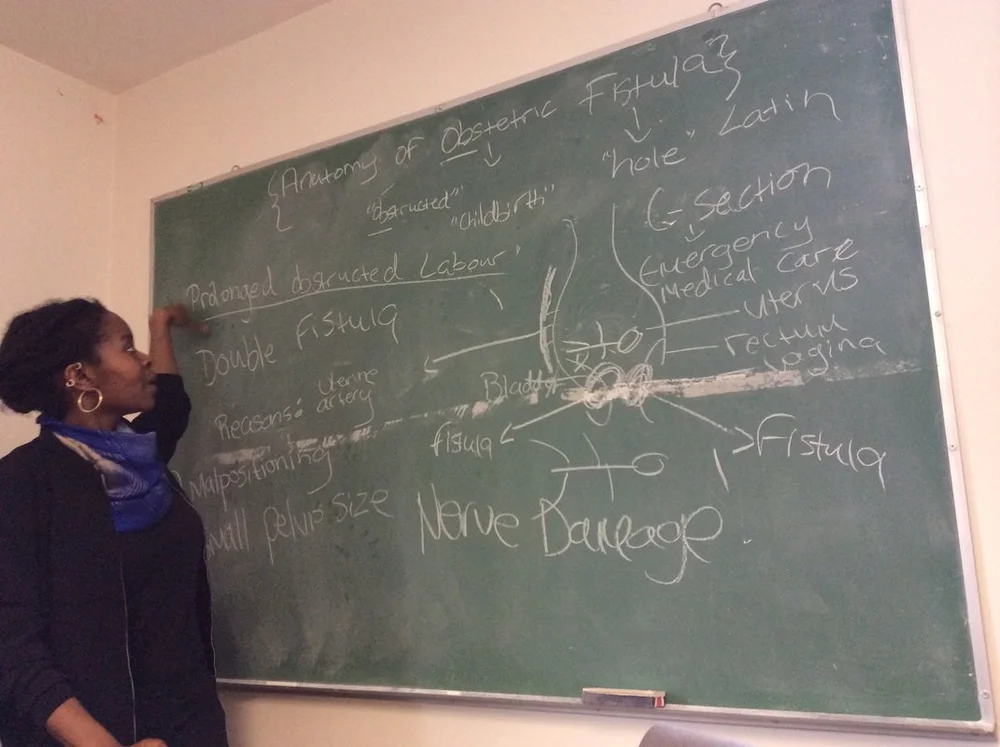 {Anatomy of Obstetric Fistula}
"obstructed" "childbirth"
"hole" Latin
Prolonged obstructed Labour
Double Fistula
Reasons: Uterine artery
Malpositioning
Small pelvis size
C-section
Emergency
Medical Care
Uterus
rectum
vagina
Bladder
fistula
Fistula
Nerve Damage